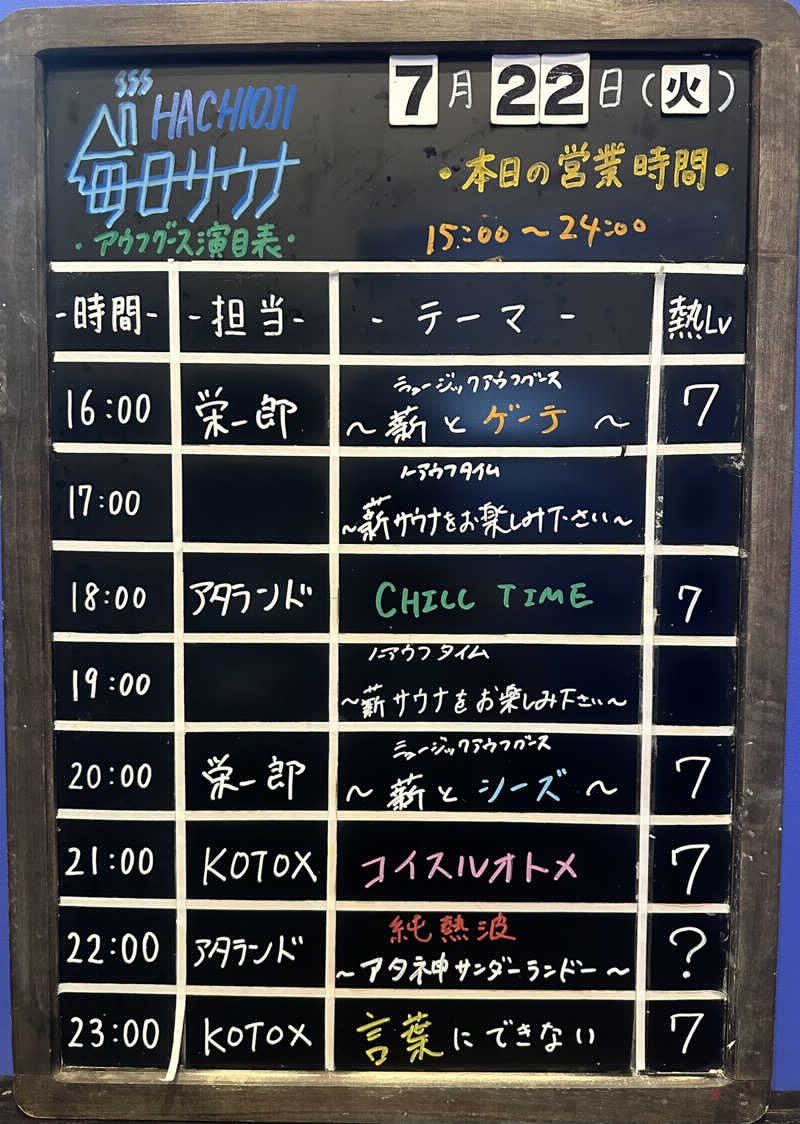 HACHIOJI
毎日サウナ
・アウフグース演目表・
7月22日(火)
・本日の営業時間・
15:00～24:00
-時間- -担当- -テーマ- 熱Lv
16:00 栄一郎 ミュージックアウフグース 7
～薪とゲーテ～
17:00 ノーアウフタイム
～薪サウナをお楽しみ下さい～
18:00 アタランド CHILL TIME 7
19:00 ノーアウフタイム
～薪サウナをお楽しみ下さい～
20:00 栄一郎 ミュージックアウフグース 7
～薪とシーズ～
21:00 KOTOX コイスルオトメ 7
22:00 アタランド 純熱波 ?
～アタ神サンダーランドー～
23:00 KOTOX 言葉にできない 7